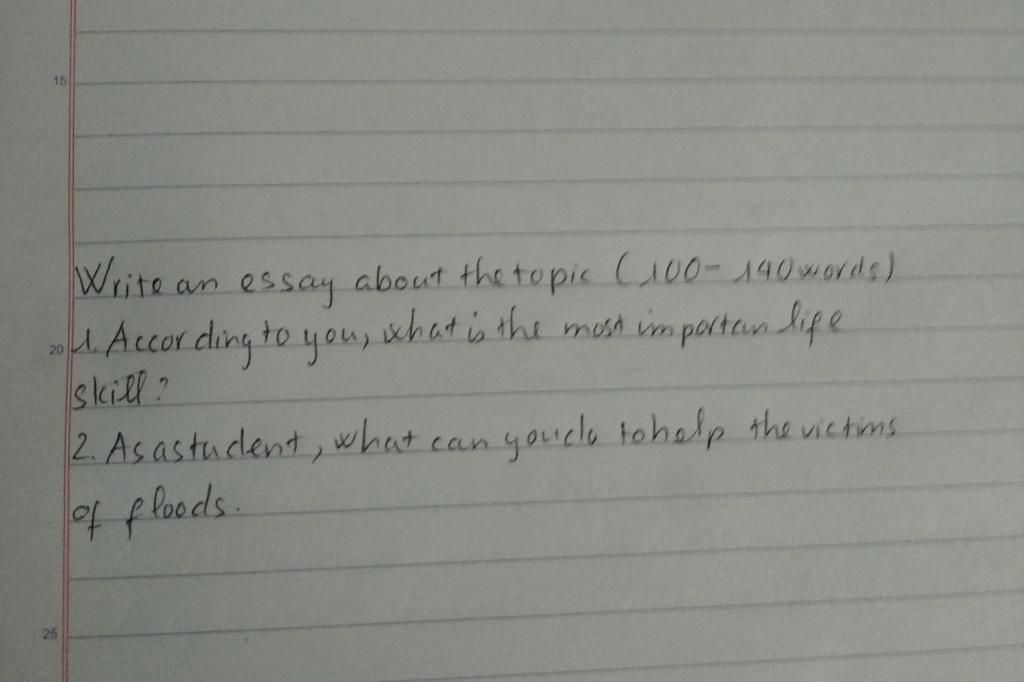 15
Write an essay about the topic (100-140 words)
20 1. According to you, what is the most importan life
skill?
2. As a student, what can you do to help the victims
of floods.
25